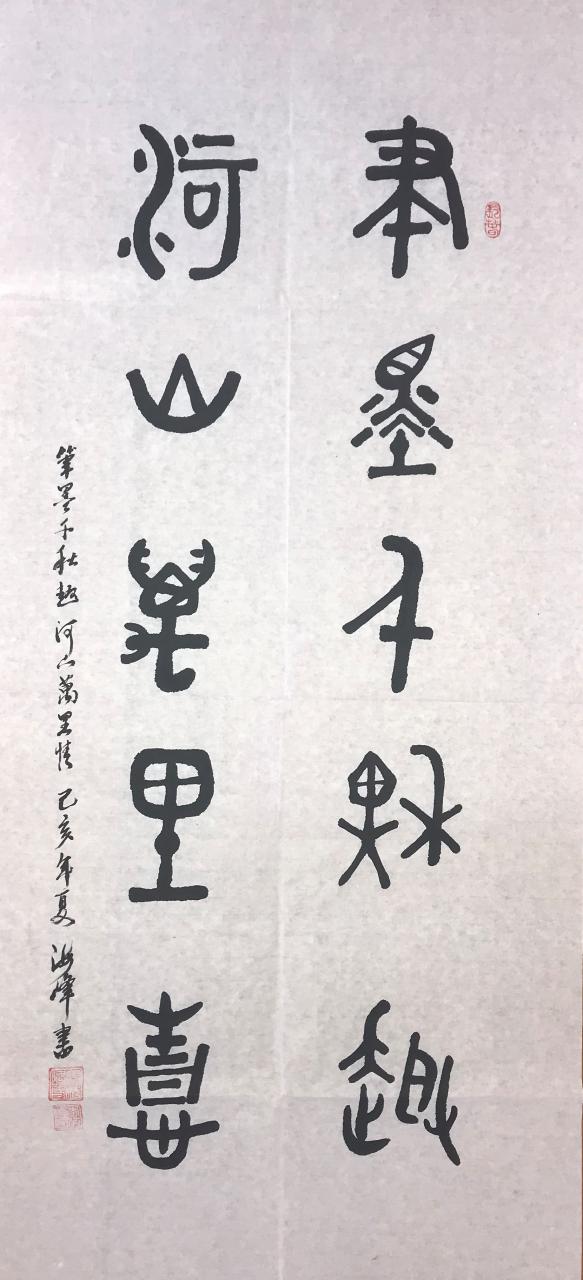 筆墨千秋趣
河山萬里情
筆墨千秋趣河山萬里情 己亥年夏 書